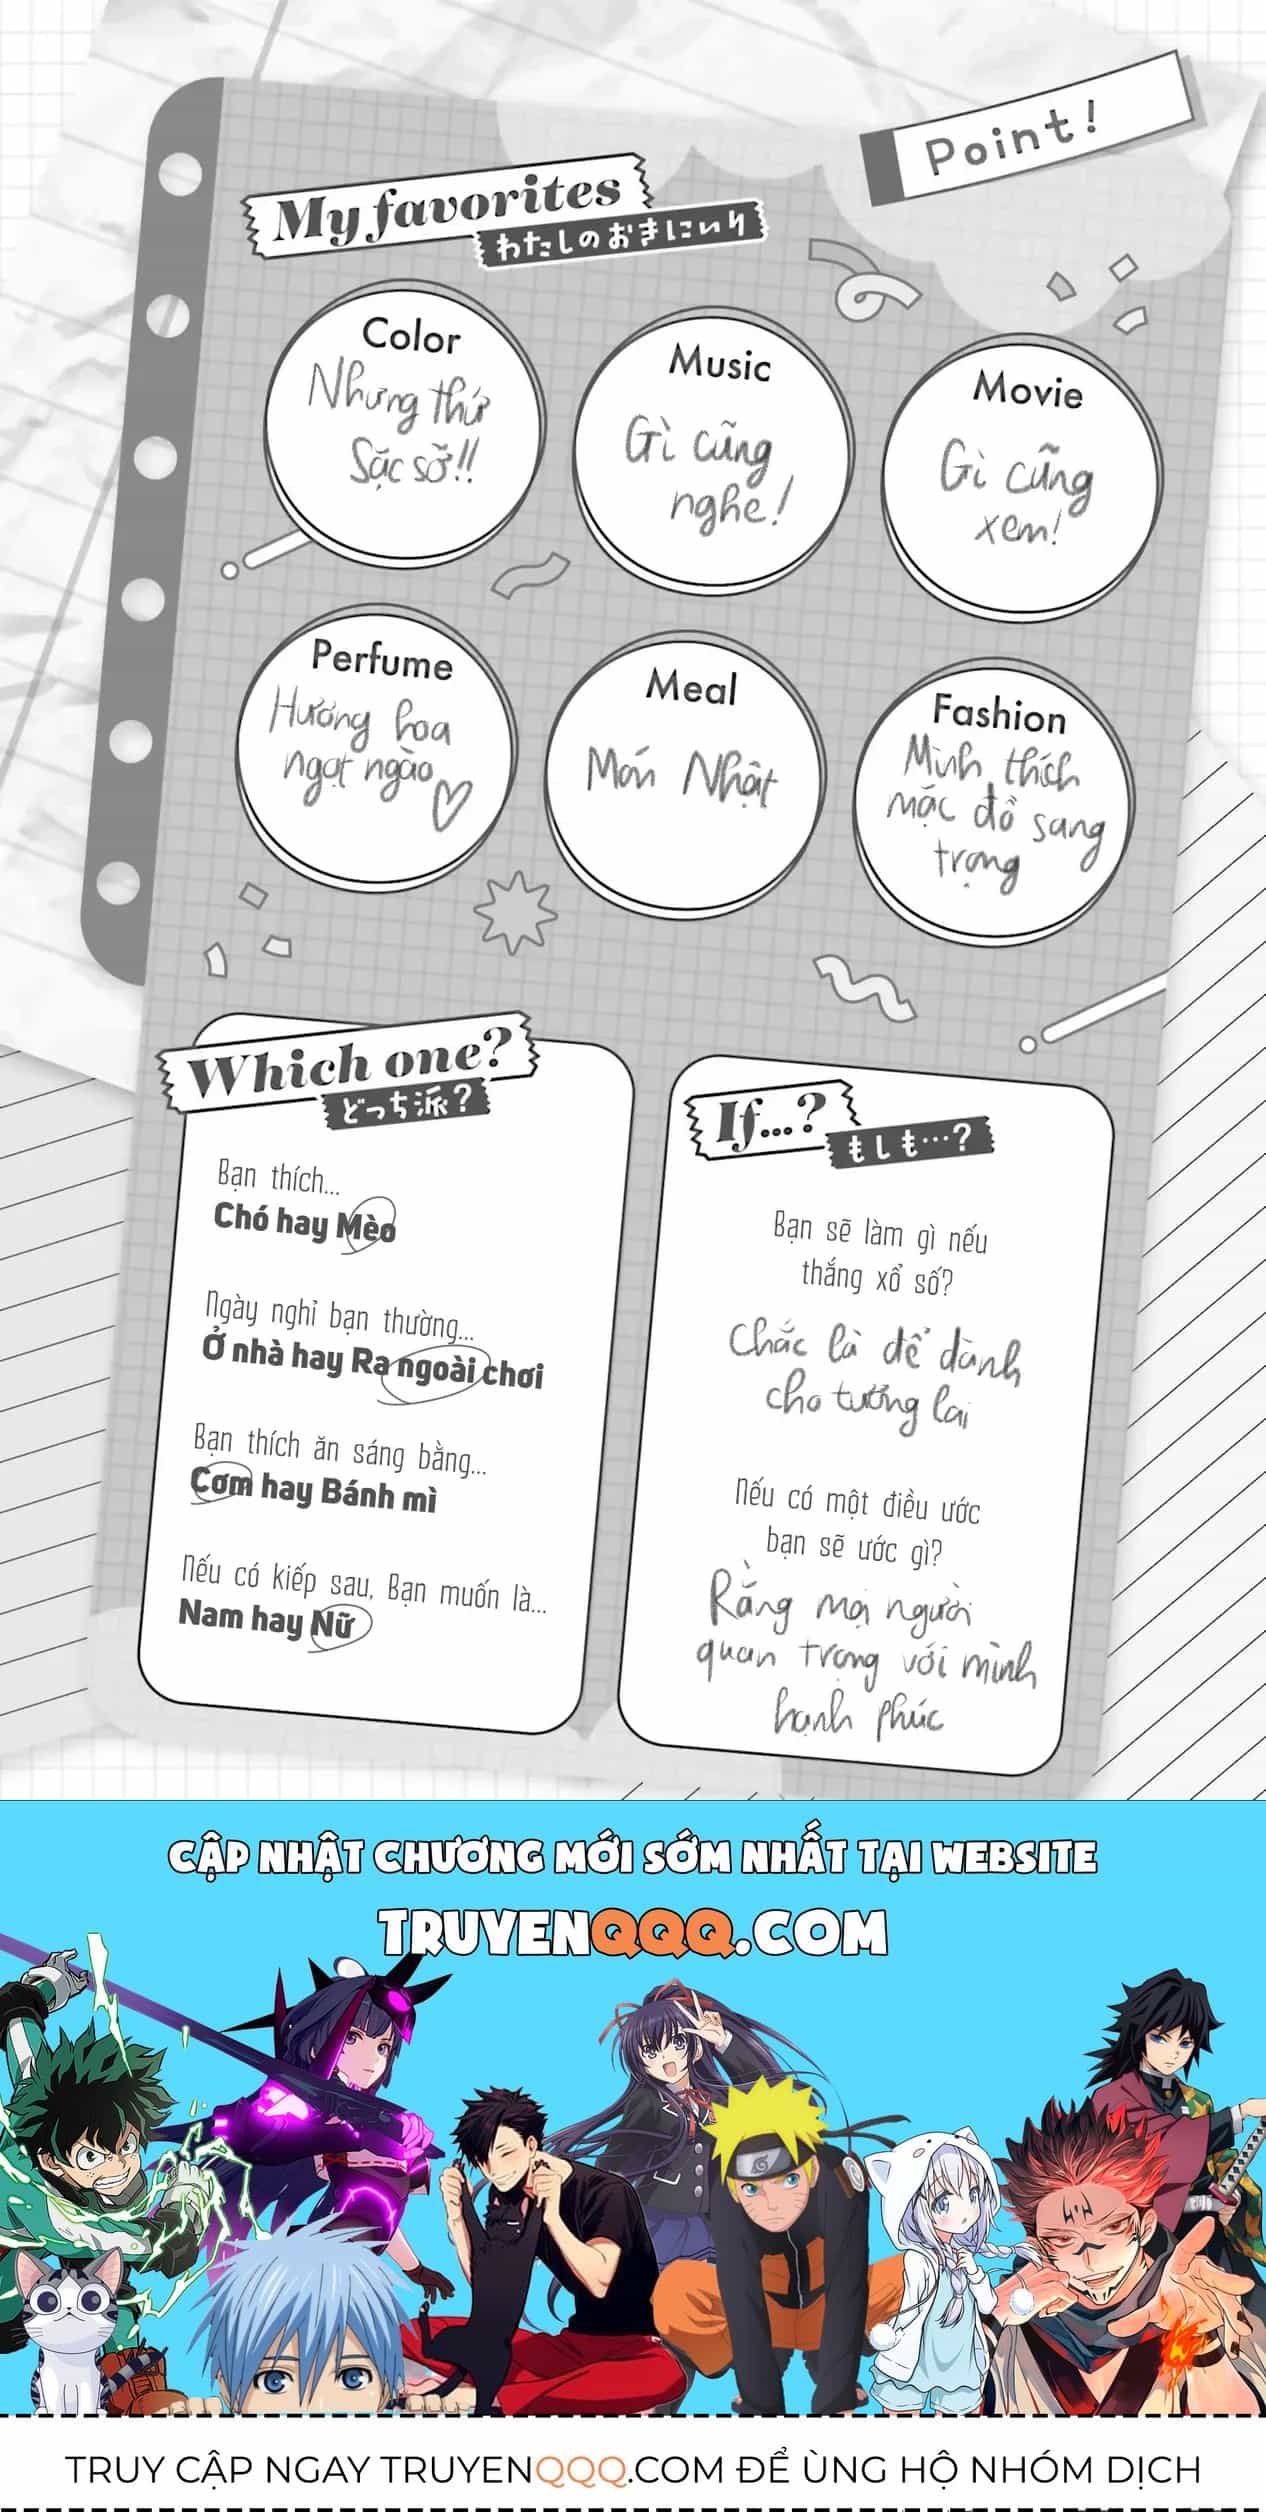 Point!
My favorites
わたしのおきにいり
Color
Nhưng thứ
Sặc sỡ!!
Music
Gì cũng
nghe!
Movie
Gì cũng
xem!
Perfume
Hương hoa
ngọt ngào
Meal
Món Nhật
Fashion
Mình thích
mặc đồ sang
trọng
Which one?
どっち派？
Bạn thích...
Chó hay Mèo
Ngày nghỉ bạn thường...
Ở nhà hay Ra ngoài chơi
Bạn thích ăn sáng bằng...
Cơm hay Bánh mì
Nếu có kiếp sau, Bạn muốn là...
Nam hay Nữ
If...?
もしも…？
Bạn sẽ làm gì nếu
thắng xổ số?
Chắc là để dành
cho tương lai
Nếu có một điều ước
bạn sẽ ước gì?
Rằng mọi người
quan trọng với mình
hạnh phúc
CẬP NHẬT CHƯƠNG MỚI SỚM NHẤT TẠI WEBSITE
TRUYENQQQ.COM
TRUY CẬP NGAY TRUYENQQQ.COM ĐỂ ÙNG HỘ NHÓM DỊCH